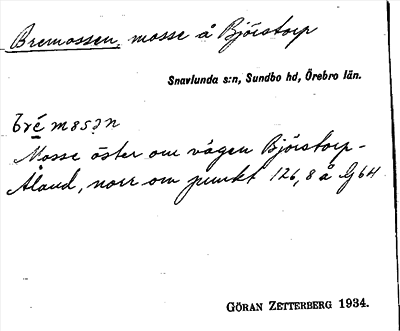 Bremossen, mosse å Björstorp
Snavlunda s:n, Sundbo hd, Örebro län.
Mosse öster om vägen Björstorp-
Åland, norr om punkt 126,8 å G 64
GÖRAN ZETTERBERG 1934.